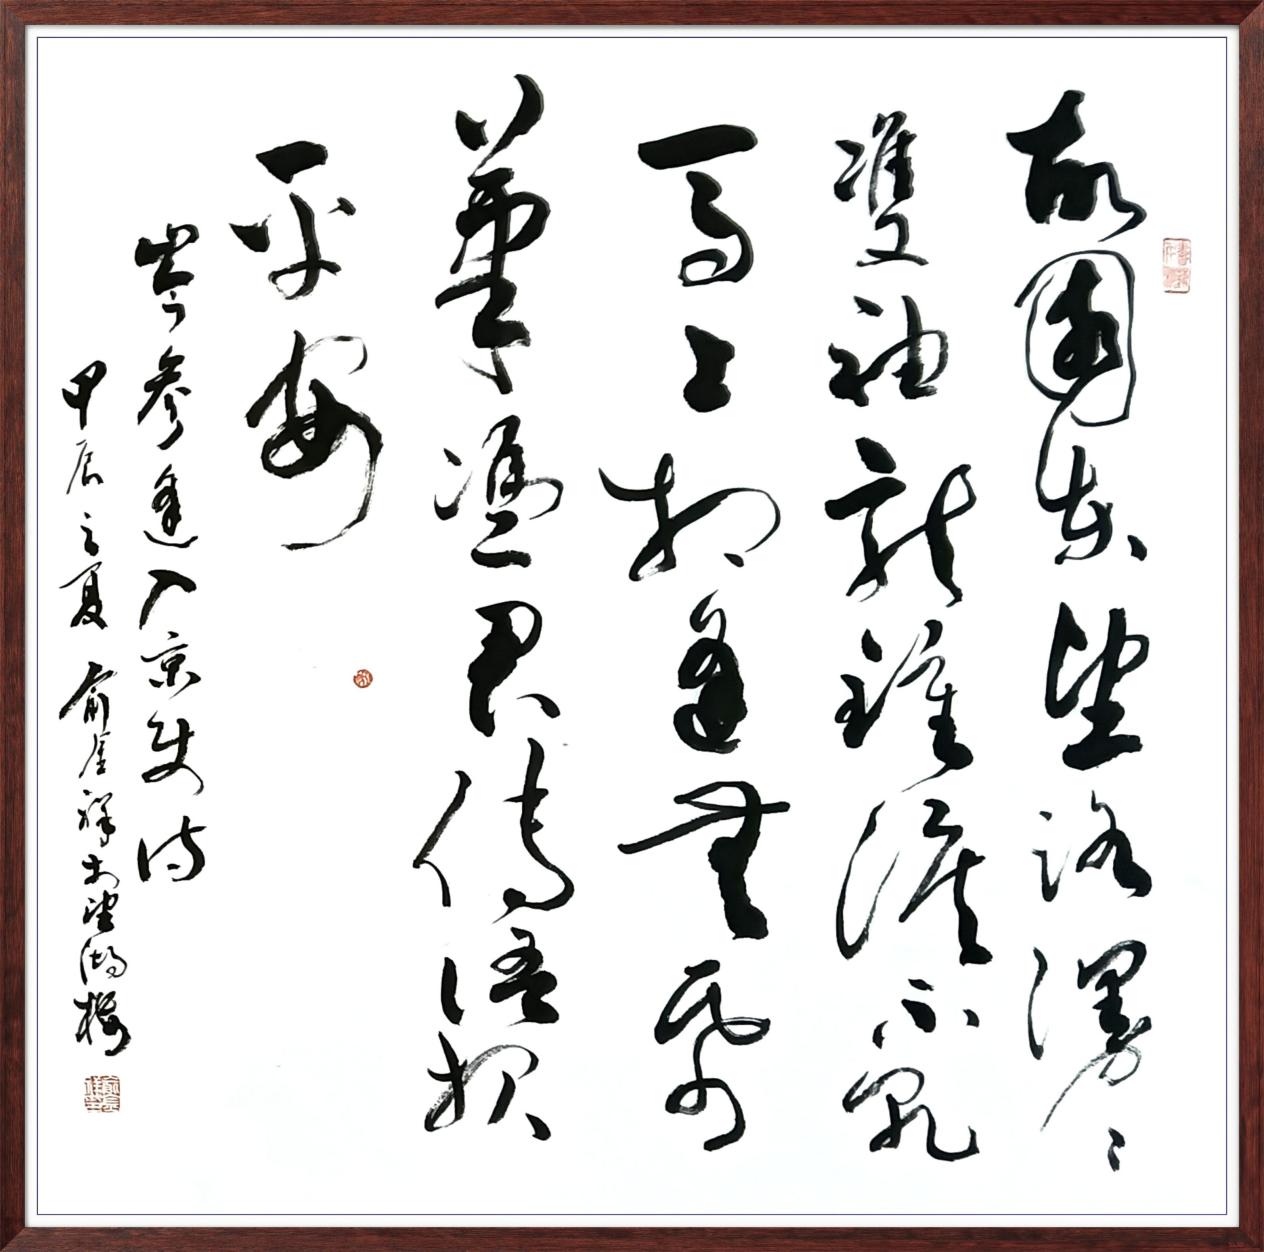 故園東望路漫漫
雙袖龍鍾淚不乾
馬上相逢無紙
筆憑君傳語報
平安
岑參逢入京使詩
甲辰之夏 俞祥望湖樓